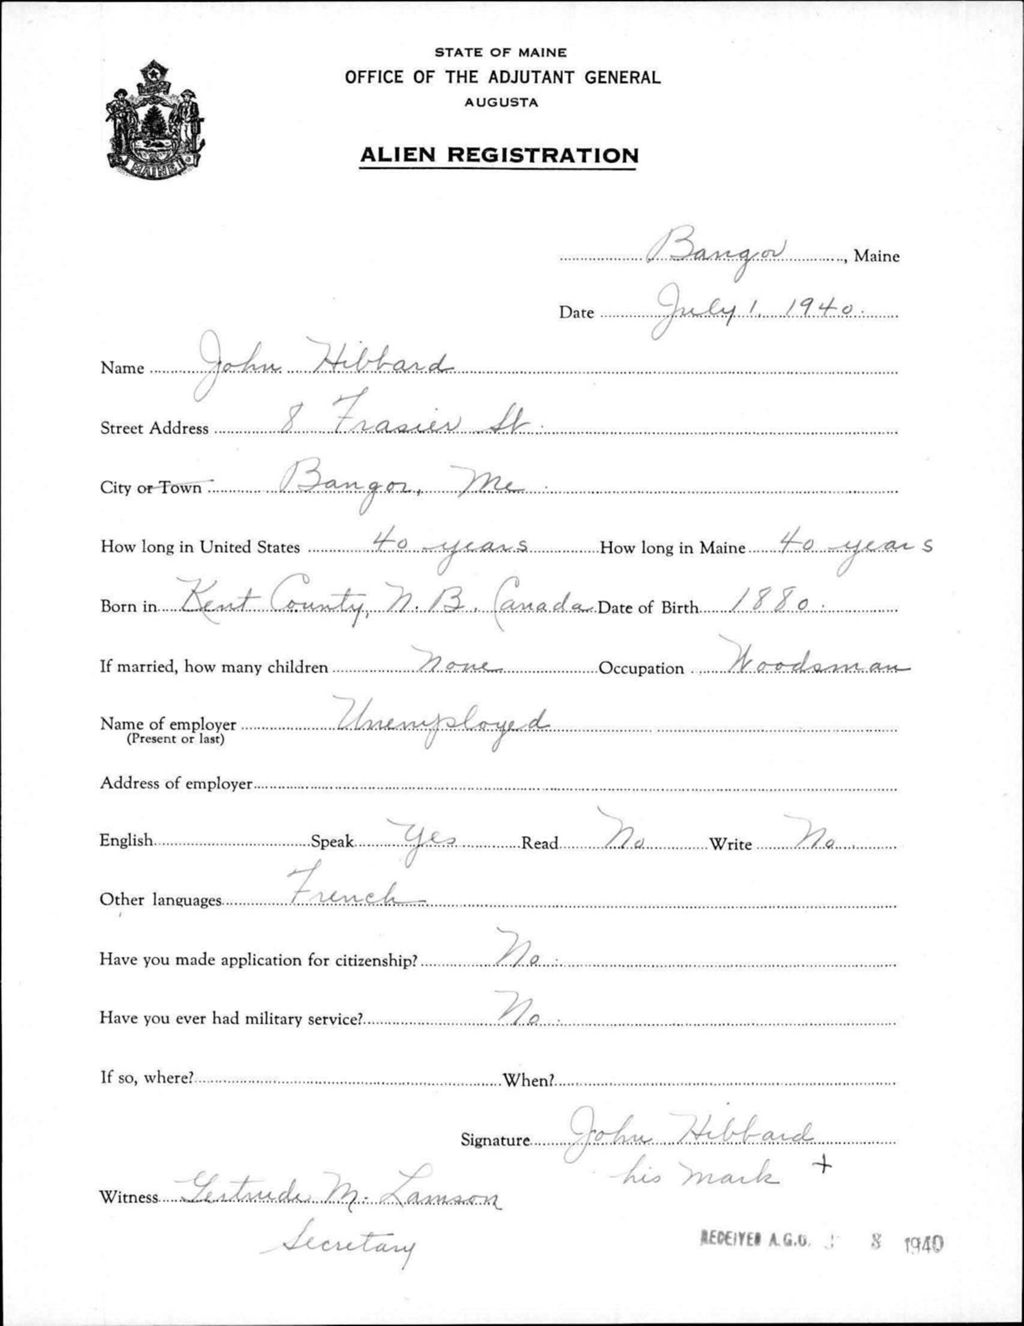 STATE OF MAINE
OFFICE OF THE ADJUTANT GENERAL
AUGUSTA
ALIEN REGISTRATION
MAINE
Bangor, Maine
Date July 1, 1940.
Name John Hibbard
Street Address 8 Frasier St.
City or Town Bangor, Me.
How long in United States 40 years How long in Maine 40 years
Born in Kent County, N. B. Canada Date of Birth 1880.
If married, how many children None Occupation Woodsman
Name of employer Unemployed
(Present or last)
Address of employer
English Speak Yes Read No Write No.
Other languages French
Have you made application for citizenship? No.
Have you ever had military service? No.
If so, where? When?
Signature John Hibbard
his mark +
Witness Gertrude M. Lamson
Secretary
RECEIVED A.G.O. 8 1940